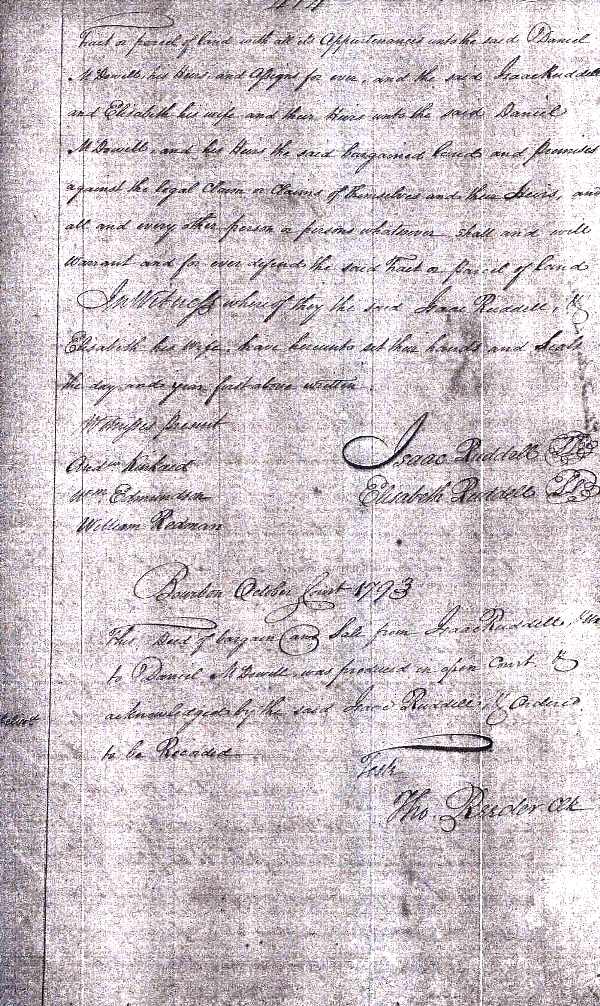 474
Tract or parcel of land with all its Appurtenances unto the said Daniel
McDowell, his Heirs and Assigns for ever, and the said Isaac Ruddell
and Elisabeth his wife and their Heirs unto the said Daniel
McDowell, and his Heirs the said bargained Land and Premises
against the legal Claim or Claims of themselves and their Heirs, and
all and every other person or persons whatsoever shall and will
warrant and for ever defend the said Tract or parcel of land
In Witness whereof they the said Isaac Ruddell, &
Elisabeth his Wife, have hereunto set their hands and Seals
the day and year first above written.
Witnesses present
Andw Kinkaid
Wm. Edmundson
William Redman
Isaac Ruddell
Elisabeth Ruddell
Bourbon October Court 1793
This Deed of bargain and Sale from Isaac Ruddell,
to Daniel McDowell was produced in open Court &
acknowledged by the said Isaac Ruddell, & Ordered
to be Recorded
Test
Tho.